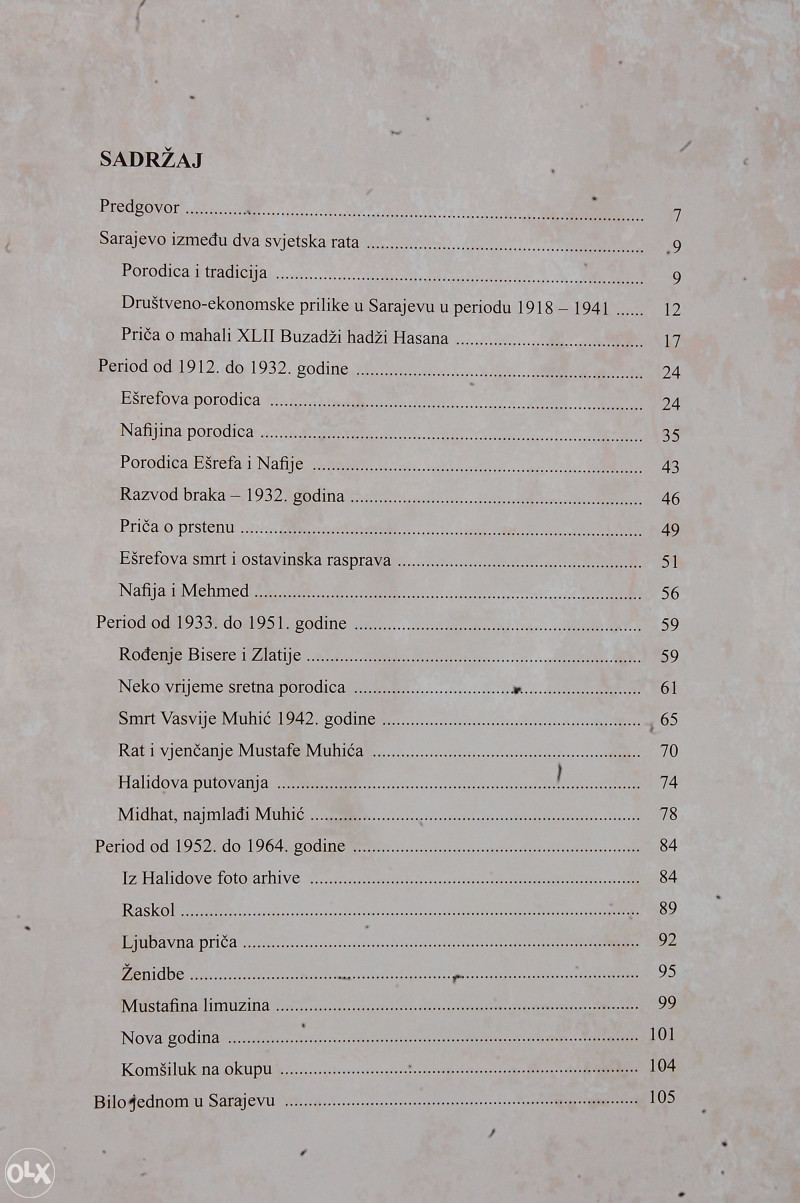 SADRŽAJ
Predgovor ........ 7
Sarajevo između dva svjetska rata ........ 9
Porodica i tradicija ........ 9
Društveno-ekonomske prilike u Sarajevu u periodu 1918 – 1941 ...... 12
Priča o mahali XLII Buzadži hadži Hasana ........ 17
Period od 1912. do 1932. godine ........ 24
Ešrefova porodica ........ 24
Nafijina porodica ........ 35
Porodica Ešrefa i Nafije ........ 43
Razvod braka – 1932. godina ........ 46
Priča o prstenu ........ 49
Ešrefova smrt i ostavinska rasprava ........ 51
Nafija i Mehmed ........ 56
Period od 1933. do 1951. godine ........ 59
Rođenje Bisere i Zlatije ........ 59
Neko vrijeme sretna porodica ........ 61
Smrt Vasvije Muhić 1942. godine ........ 65
Rat i vjenčanje Mustafe Muhića ........ 70
Halidova putovanja ........ 74
Midhat, najmlađi Muhić ........ 78
Period od 1952. do 1964. godine ........ 84
Iz Halidove foto arhive ........ 84
Raskol ........ 89
Ljubavna priča ........ 92
Ženidbe ........ 95
Mustafina limuzina ........ 99
Nova godina ........ 101
Komšiluk na okupu ........ 104
Bilo jednom u Sarajevu ........ 105
OLX